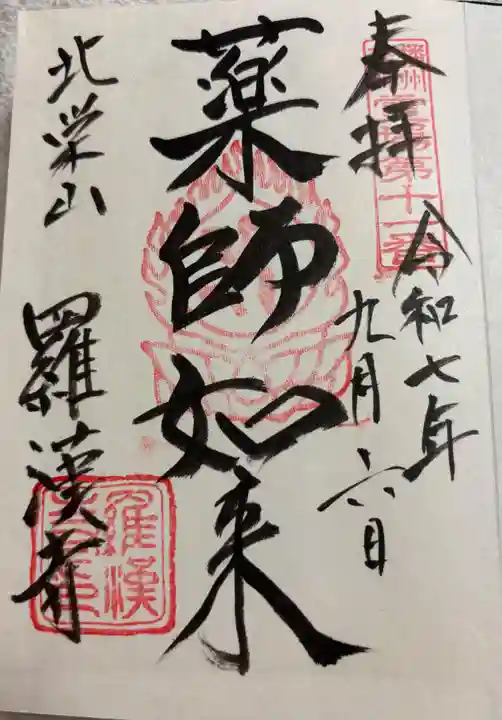 奉拝
播州霊場第十一番
令和七年
九月六日
薬師如来
北栄山
羅漢寺